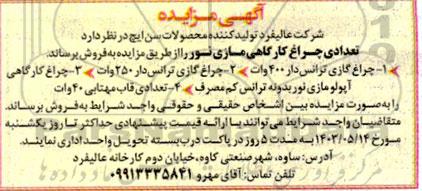 آگهی مزایده
شرکت عالیفرد تولیدکننده محصولات سن ایچ در نظر دارد
تعدادی چراغ کارگاهی مازی نور را از طریق مزایده به فروش برساند.
۱- چراغ گازی ترانس دار ۴۰۰ وات ۲- چراغ گازی ترانس دار ۲۵۰ وات ۳- چراغ کارگاهی
آپولو مازی نور بدون ترانس کم مصرف ۴- تعدادی قاب مهتابی ۴۰ وات
را به صورت مزایده بین اشخاص حقیقی و حقوقی واجد شرایط به فروش برساند.
متقاضیان واجد شرایط می توانند با ارائه قیمت پیشنهادی حداکثر تا روز یکشنبه
مورخ ۱۴۰۳/۰۵/۱۴ به مدت ۵ روز در پاکت درب بسته تحویل واحد اداری نمایند.
آدرس: ساوه، شهر صنعتی کاوه، خیابان دوم کارخانه عالیفرد
تلفن تماس: آقای مهرو ۰۹۹۱۳۳۳۵۸۴۱